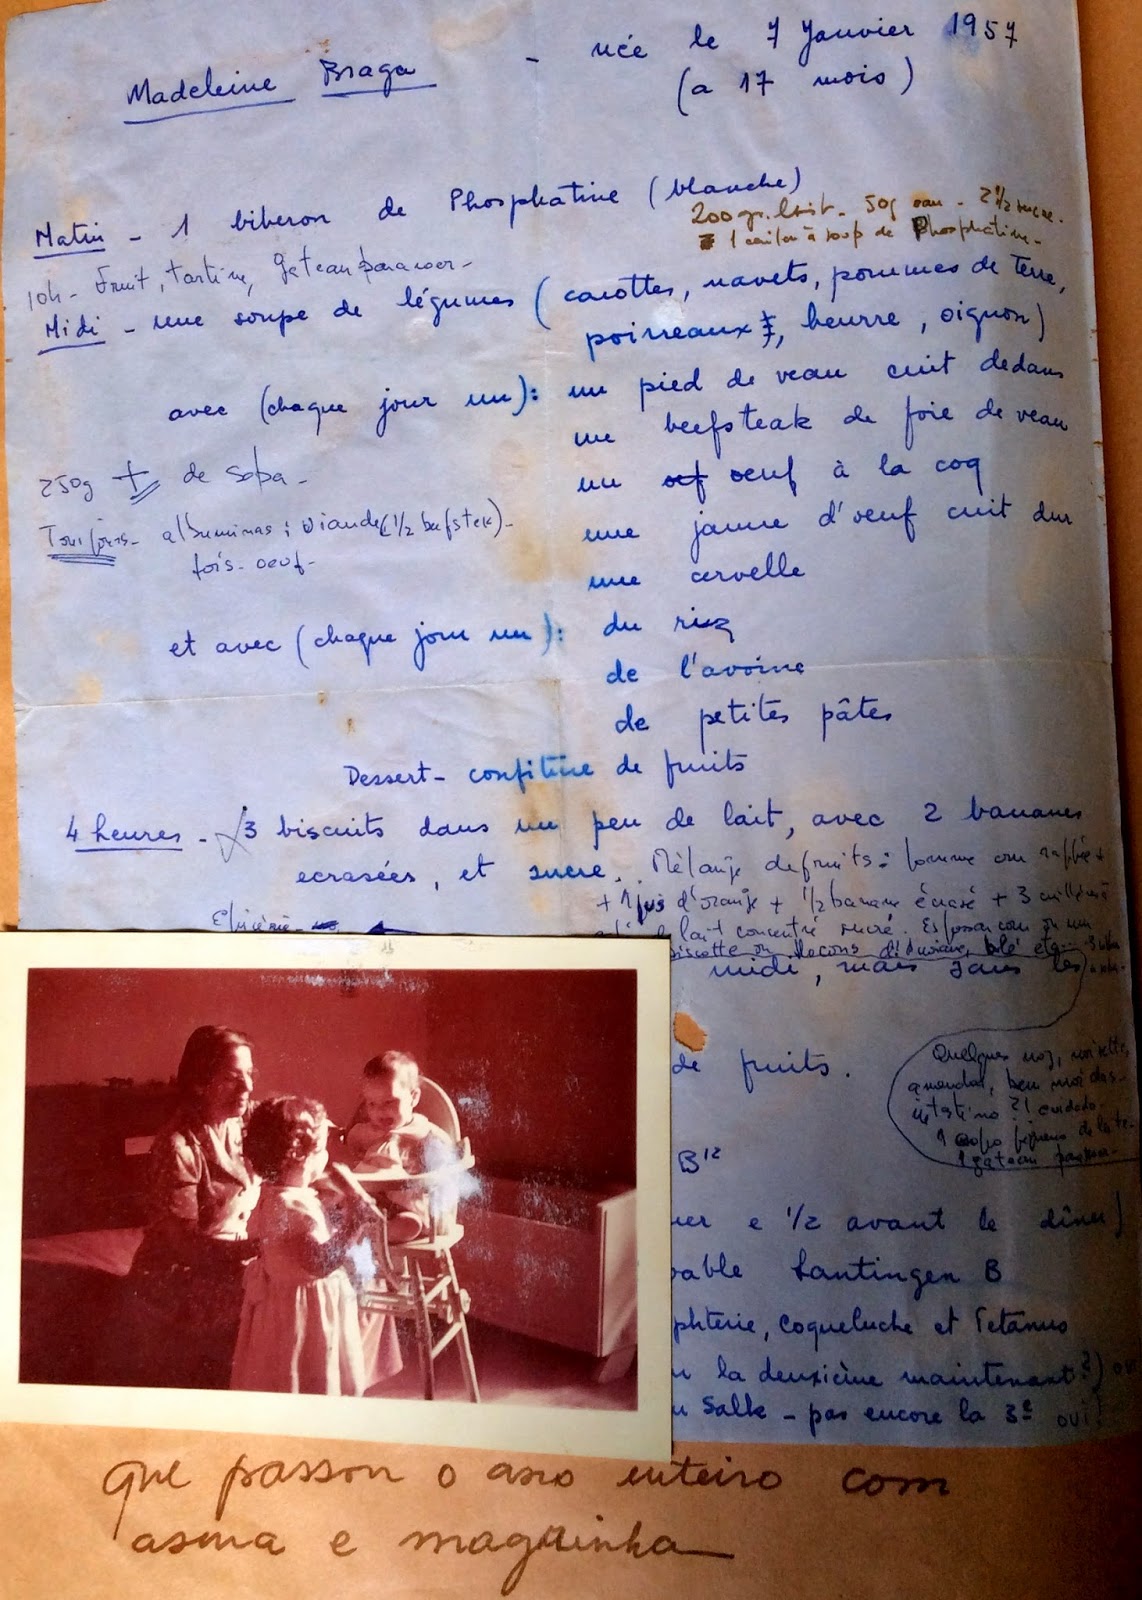 Madeleine Braga - née le 7 Janvier 1957
(a 17 mois)
Matin - 1 biberon de Phosphatine (blanche)
200 gr. lait - 50g eau - 2 1/2 sucre.
1 cuiller à soup de Phosphatine -
10h - Fruit, tartine, gateau
Midi - une soupe de légumes (carottes, navets, pommes de terre,
poirreaux, beurre, oignon)
avec (chaque jour un): un pied de veau cuit dedans
un beefsteak de foie de veau
250g + de sopa -
un oef oeuf à la coq
Toujours - albuminas: viande (1/2 bufstek) -
une jaune d'oeuf cuit dur
fois - oeuf -
une cervelle
et avec (chaque jour un): du riz
de l'avoine
de petites pâtes
Dessert - confiture de fruits
4 heures - 3 biscuits dans un peu de lait, avec 2 bananes
ecrasées, et sucre. Mélange de fruits: pomme
+ 1 jus d'orange + 1/2 banane écrasé + 3
lait concentré sucré.
biscotte ou flocons d'avoine, blé etc
midi, mais sans les
de fruits.
Quelques noz, noisette,
1 copo
1 gateau
B12
e 1/2 avant le dîner)
Lantingen B
phterie, coqueluche et Tetanus
la deuxième maintenant?) oui
Salk - pas encore la 3e oui!
que passou o ano inteiro com
asma e maquinha